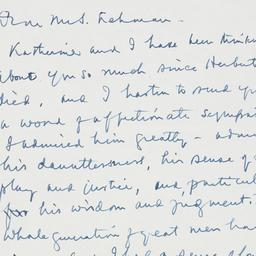 Dear Mrs. Lehman -
Katherine and I have been thinking
about you so much since Herbert
died, and I hasten to send you
a word of affectionate sympathy.
I admired him greatly - admired
his dauntlessness, his sense of
play and justice, and, particularly
for his wisdom and judgment.
whole generation of great men has
I had a sense